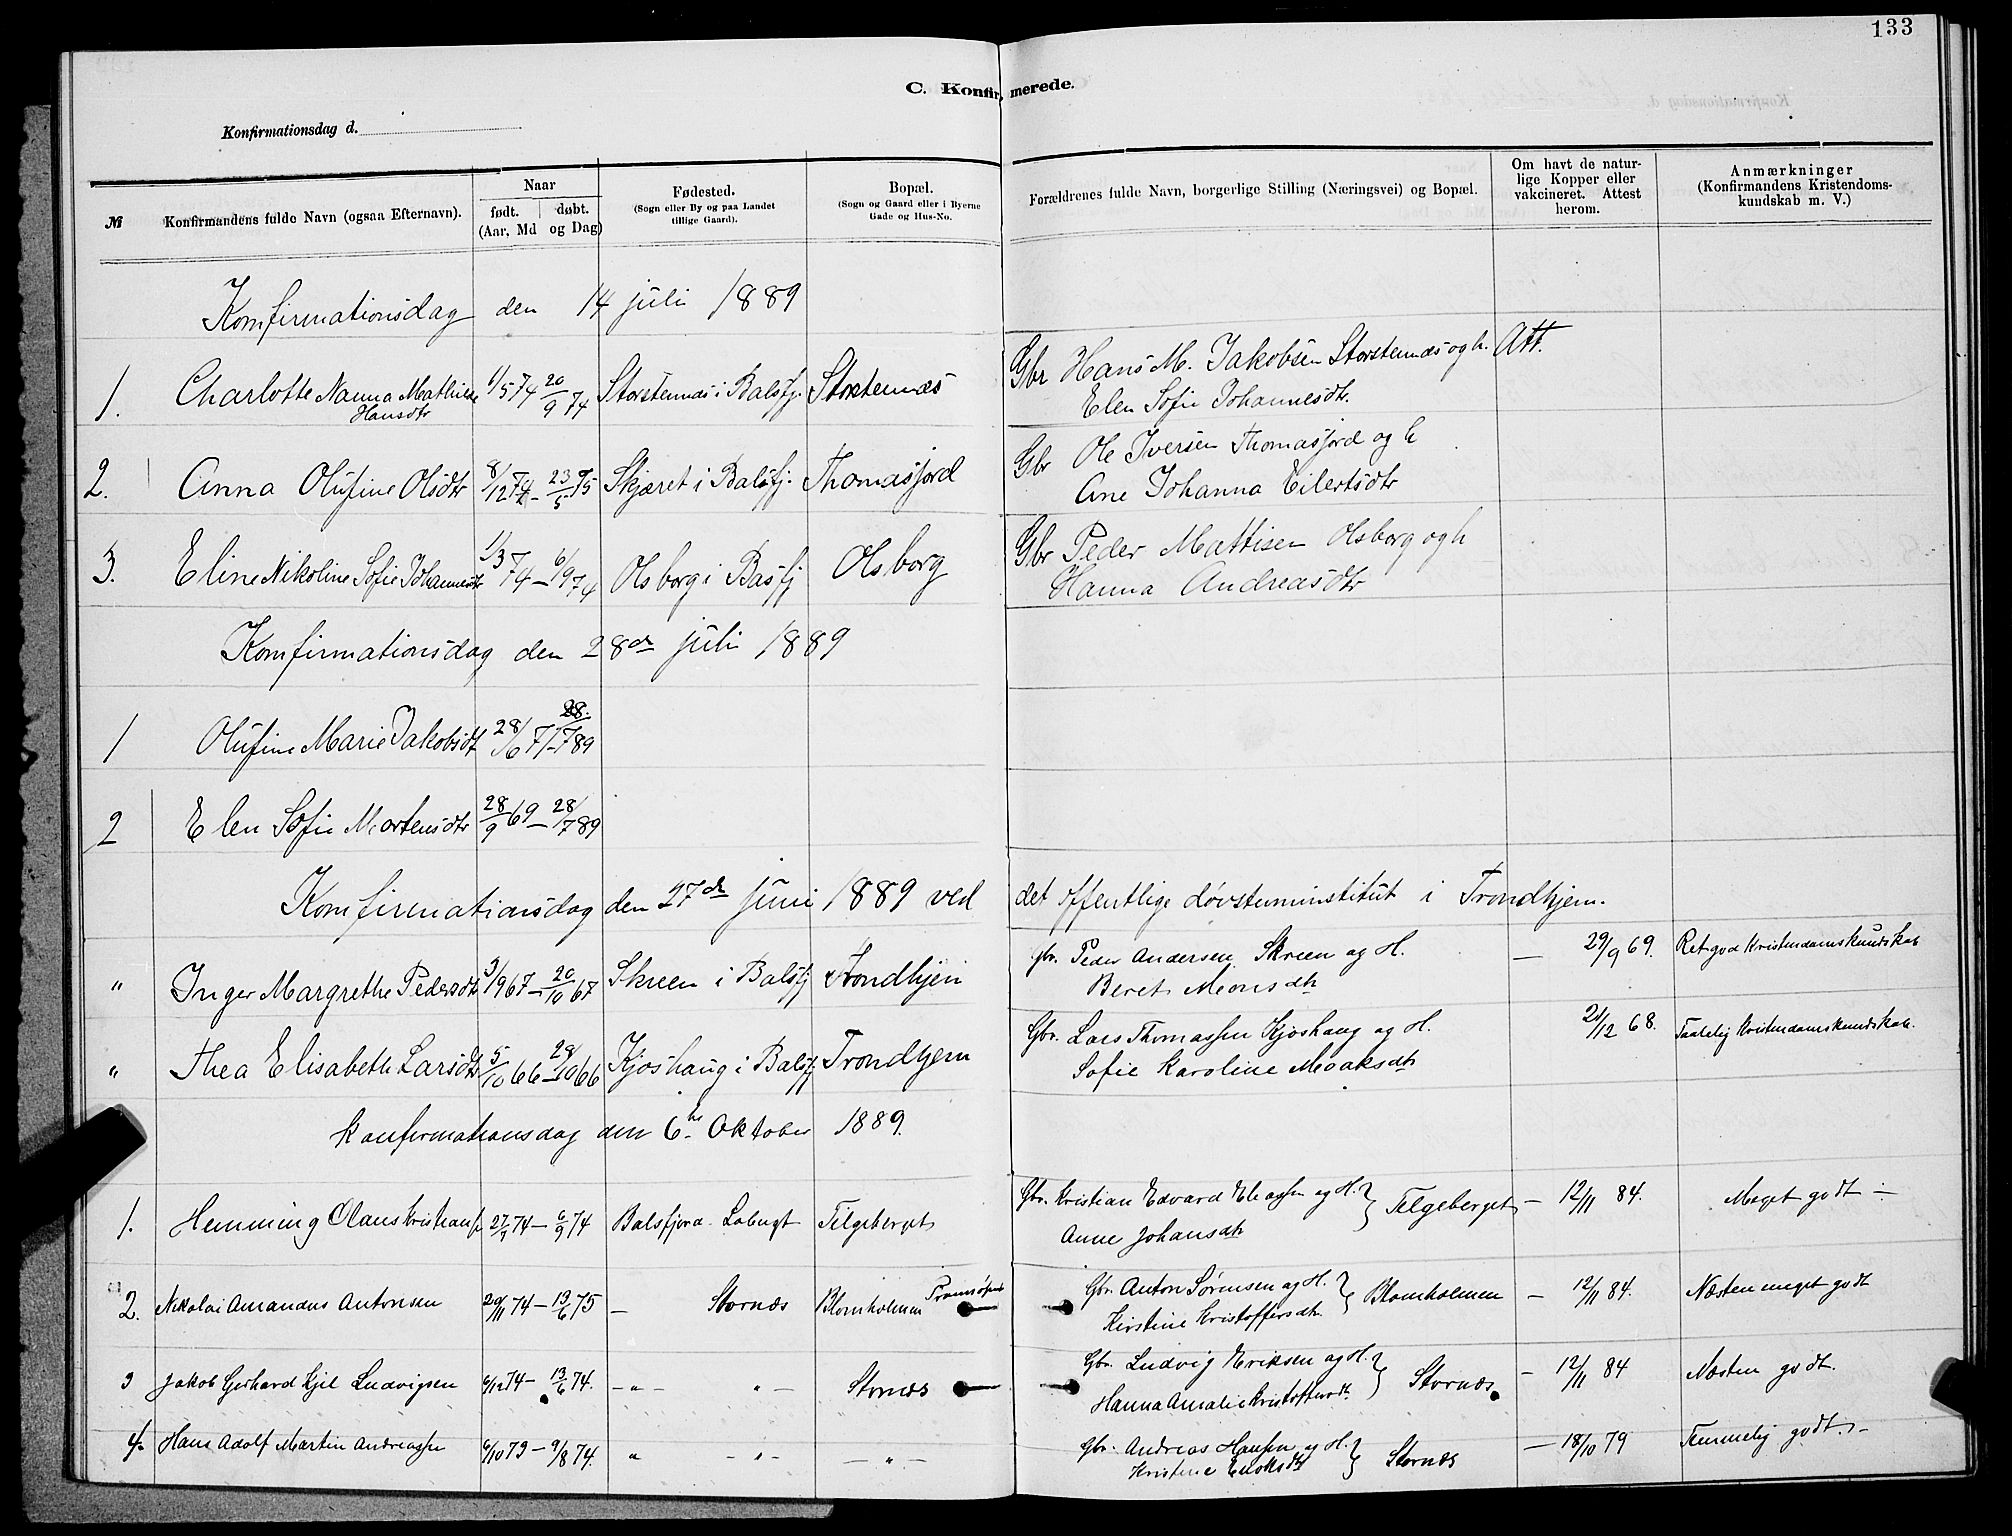 133
C. Konfirmerede.
Konfirmationsdag d.
№
Konfirmandens fulde Navn (ogsaa Efternavn).
Naar
født. døbt.
(Aar, Md og Dag)
Fødested.
(Sogn eller By og paa Landet
tillige Gaard).
Bopæl.
(Sogn og Gaard eller i Byerne
Gade og Hus-No.
Forældrenes fulde Navn, borgerlige Stilling (Næringsvei) og Bopæl.
Om havt de natur-
lige Kopper eller
vakcineret. Attest
herom.
Anmærkninger
(Konfirmandens Kristendoms-
kundskab m. V.)
Komfirmationsdag den 14 juli 1889
1. Charlotte Nanna Mathilde 1/5 74 20/9 74 Storstennæs i Balsfj. Storstennæs Gbr Hans M. Jakobsen Storstennæs og h. Att.
Hansdtr Elen Sofie Johannesdtr.
2. Anna Olufine Olsdtr 8/12 74 - 23/5 75 Skjæret i Balsfj. Thomasjord Gbr Ole Iversen Thomasjord og h
Ane Johanna Eilertsdtr
3. Eline Nikoline Sofie Johannesdtr 1/3 74 - 6/9 74 Olsborg i Basfj Olsborg Gbr Peder Mattisen Olsborg og h
Hanna Andreasdtr
Komfirmationsdag den 28de juli 1889
1 Olufine Marie Jakobsdt 28/6 71 - 28/7 89
2 Elen Sofie Mortensdtr 28/9 69 - 28/7 89
Komfirmationsdag den 27de juni 1889 ved det offentlige døvstuminstitut i Trondhjem.
" Inger Margrethe Pedersdtr 3/9 67 - 20/10 67 Skreen i Balsfj Trondhjem gbr. Peder Andersen Skreen og H. — 29/9 69. Ret god Kristendomskundskab
Beret Monsdtr
" Thea Elisabeth Larsdtr 5/10 66 - 28/10 66 Kjoshaug i Balsfj Trondhjem Gbr. Lars Thomassen Kjoshaug og H. 21/12 68. Taalelig Kristendomskundskab.
Sofie Karoline Moaksdtr
Konfirmationsdag den 6te Oktober 1889.
1. Hemming Olaus Kristiansen 27/7 74 - 6/9 74 Balsfjord Tilgeberget Gbr. Kristian Edvard Eliassen og H. } Tilgeberget — 12/11 84. Meget godt —
Anne Johansdtr
2. Nikolai Amandus Antonsen 20/11 74 - 13/6 75 — Stornæs Blomholmen Gbr. Anton Sørensen og H. } Blomholmen — 12/11 84. Næsten meget godt
Kirstine Kristoffersdtr.
3 Jakob Gerhard Kjil Ludvigsen 6/12 74 - 13/6 74. - " - " - Stornæs Gbr. Ludvig Eriksen og H. } Stornæs — 12/11 84 Næsten godt.
Hanna Amalie Kristoffersdtr
4. Hans Adolf Martin Andreassen 6/10 73 - 9/8 74. " - " - - " - Gbr. Andreas Hansen og H. } Stornæs — 18/10 79 Temmelig godt. -
Kristine Enoksdtr